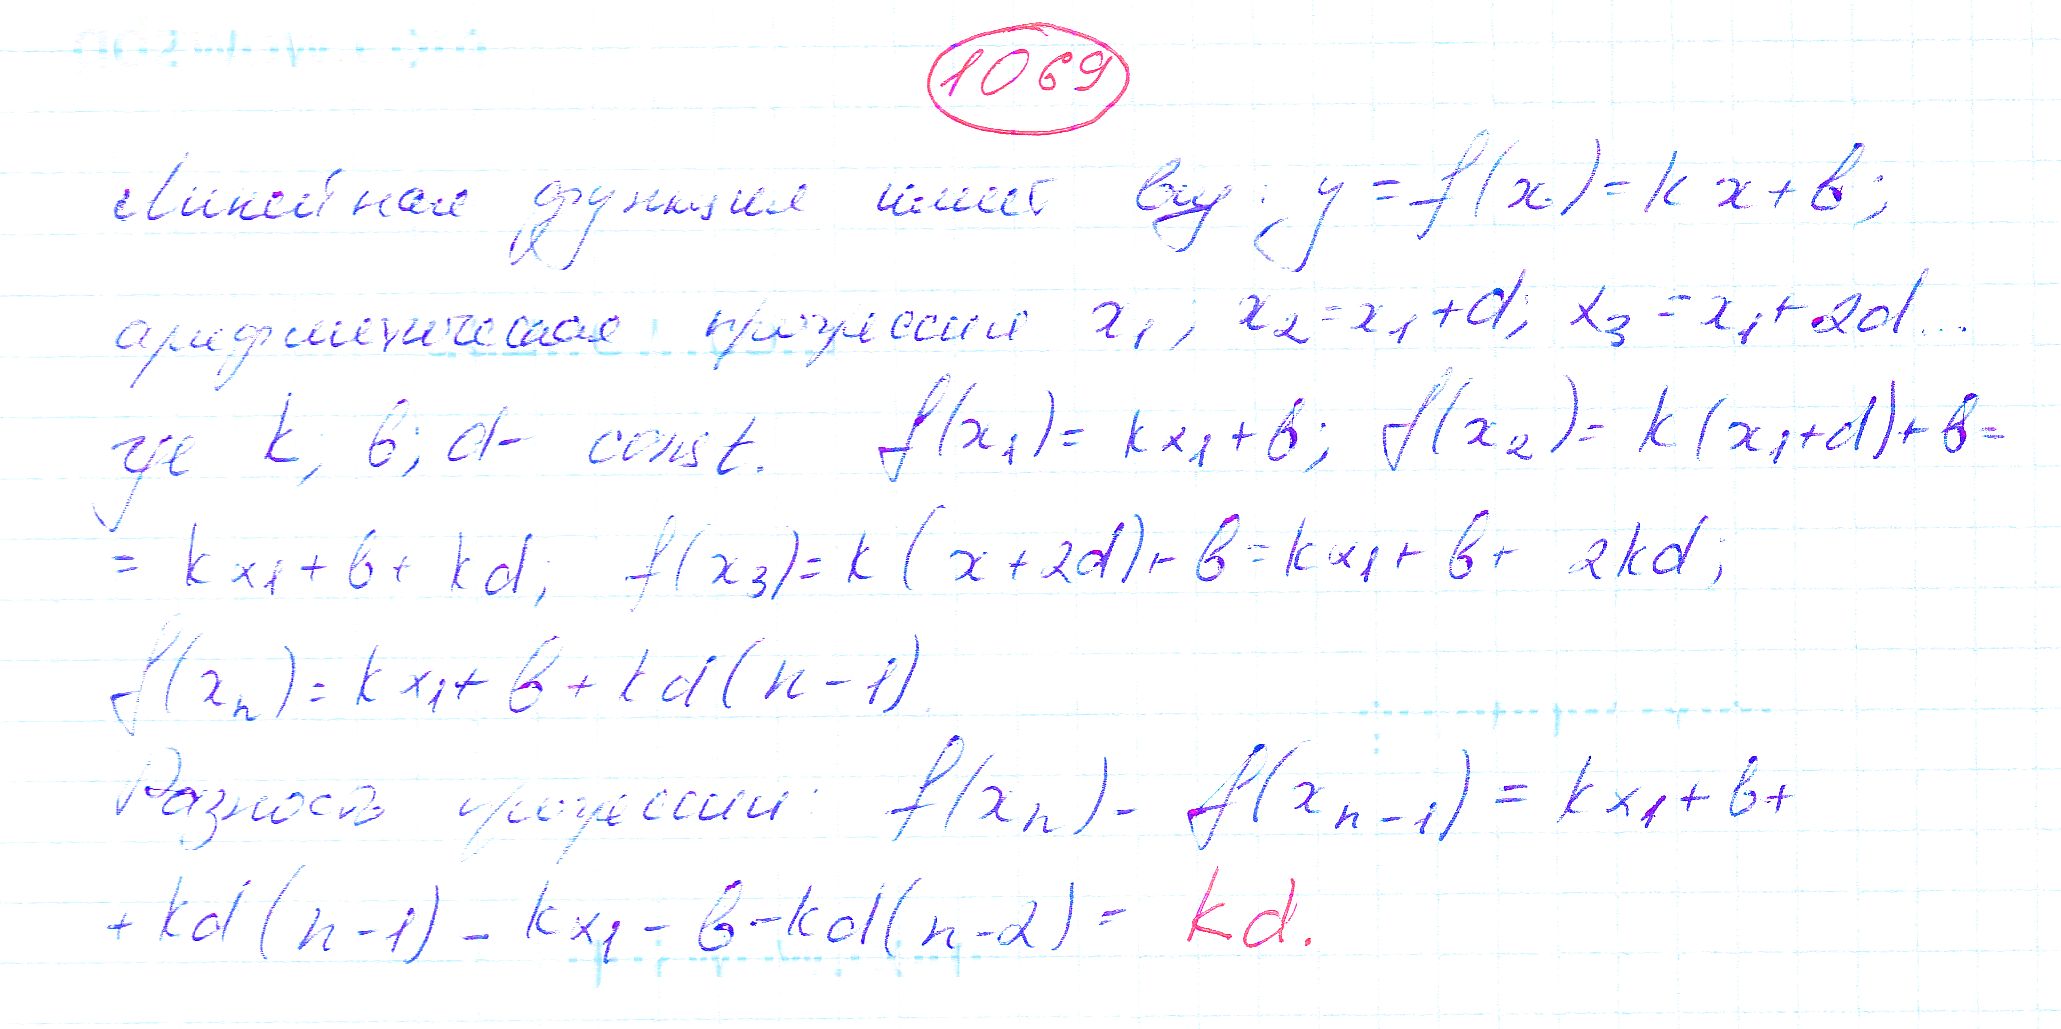 1069
Линейная функция имеет вид: y = f(x) = kx + b;
арифметическая прогрессия x₁; x₂ = x₁ + d; x₃ = x₁ + 2d...
где k; b; d - const. f(x₁) = kx₁ + b; f(x₂) = k(x₁ + d) + b =
= kx₁ + b + kd; f(x₃) = k(x + 2d) + b = kx₁ + b + 2kd;
f(xₙ) = kx₁ + b + kd(n - 1)
Разность прогрессии: f(xₙ) - f(xₙ₋₁) = kx₁ + b +
+ kd(n - 1) - kx₁ - b - kd(n - 2) = kd.